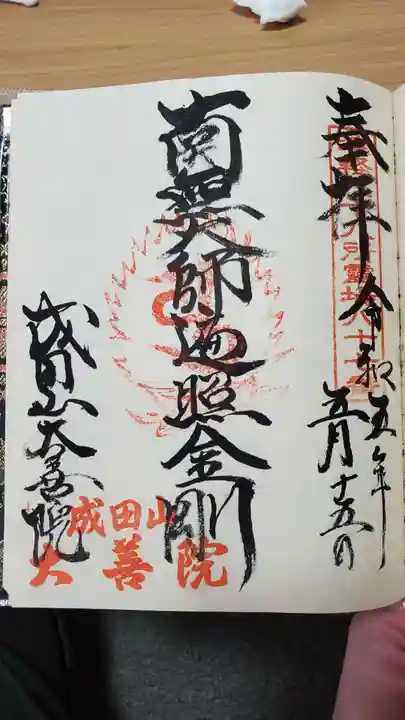 奉拝
令和五年
五月十五日
南無大師遍照金剛
成田山大善院
成田山
大善院